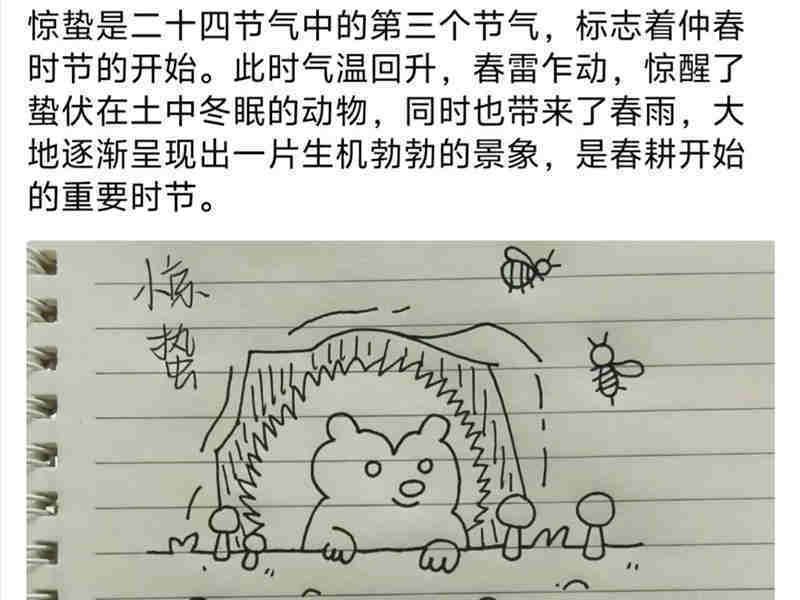 惊蛰是二十四节气中的第三个节气，标志着仲春
时节的开始。此时气温回升，春雷乍动，惊醒了
蛰伏在土中冬眠的动物，同时也带来了春雨，大
地逐渐呈现出一片生机勃勃的景象，是春耕开始
的重要时节。
惊
蛰